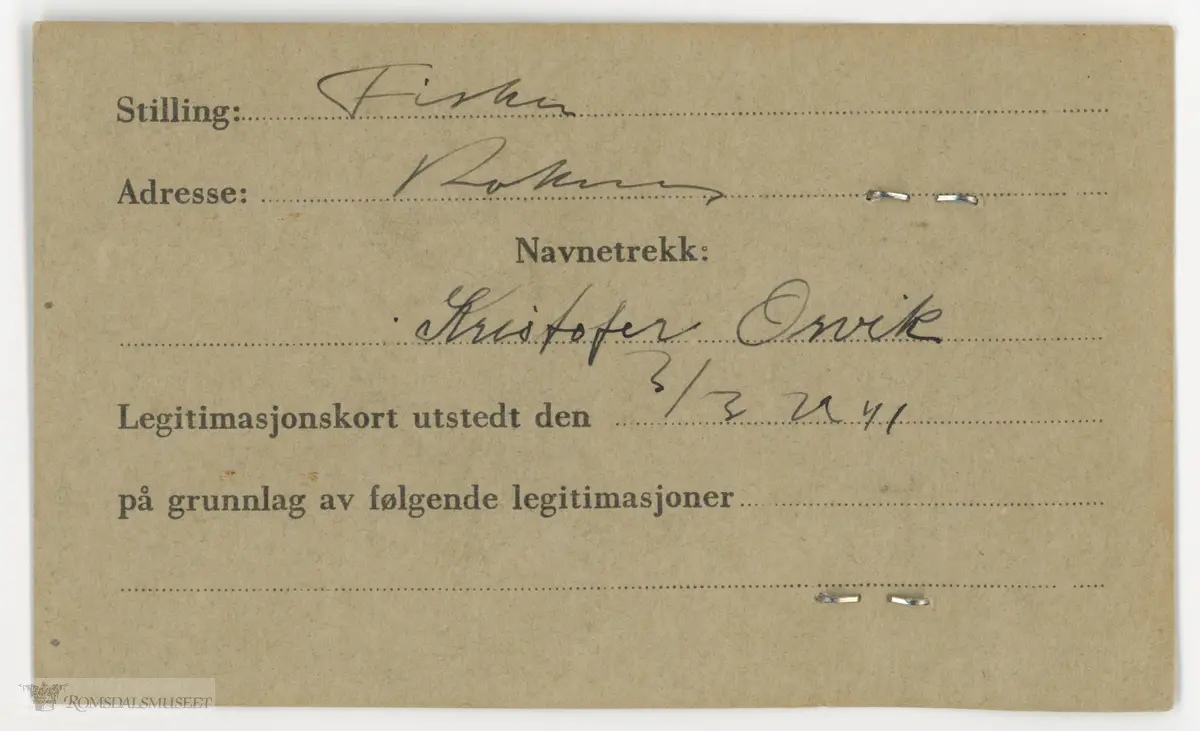 Stilling: Fisker
Adresse:
Navnetrekk:
Kristofer Orvik
Legitimasjonskort utstedt den 3/3 41
på grunnlag av følgende legitimasjoner
ROMSDALSMUSEET